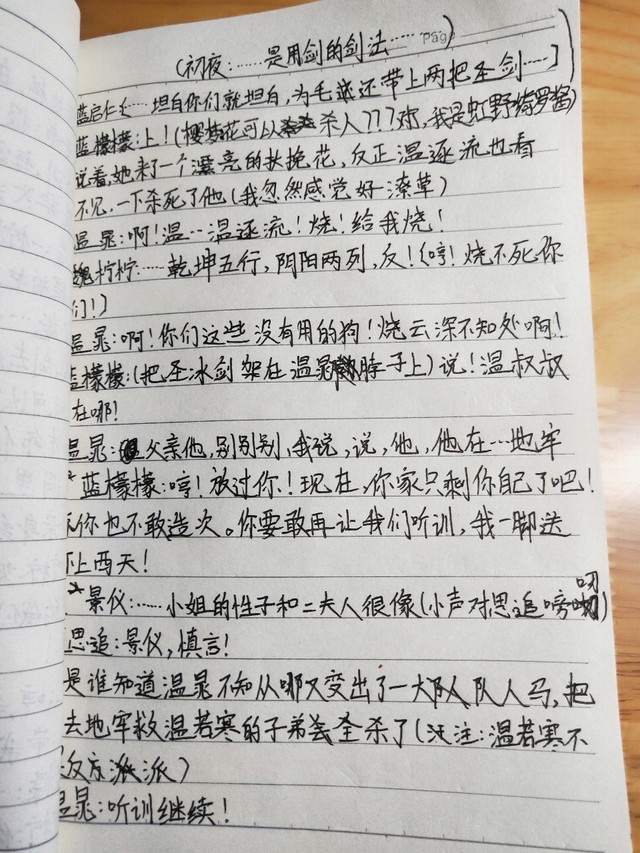 (初夜:……是用剑的剑法…… Page )
蓝启仁:……坦白你们就坦白,为毛线还带上两把圣剑……]
蓝檬檬:上!(樱梦花可以杀人???对,我是虹野绮罗酱)
说着,她来了一个漂亮的扶挽花,反正温逐流也看
不见,一下杀死了他(我忽然感觉好潦草)
温晁:啊!温……温逐流!烧!给我烧!
魏柠柠:……乾坤五行,阴阳两列,反!(哼!烧不死你
们!)
温晁:啊!你们这些没有用的狗!烧云深不知处啊!
蓝檬檬:(把圣冰剑架在温晁脖子上)说!温叔叔
在哪!
温晁:父亲他,别别别,我说,说,他,他在…地牢
*蓝檬檬:哼!放过你!现在,你家只剩你自己了吧!
你也不敢造次。你要敢再让我们听训,我一脚送
上西天!
*景仪:……小姐的性子和二夫人很像(小声对思追嘚叨)
思追:景仪,慎言!
是谁知道温晁不知从哪又变出了一大队人马,把
去地牢救温若寒的子弟全杀了(注:温若寒不
反方派)
温晁:听训继续!